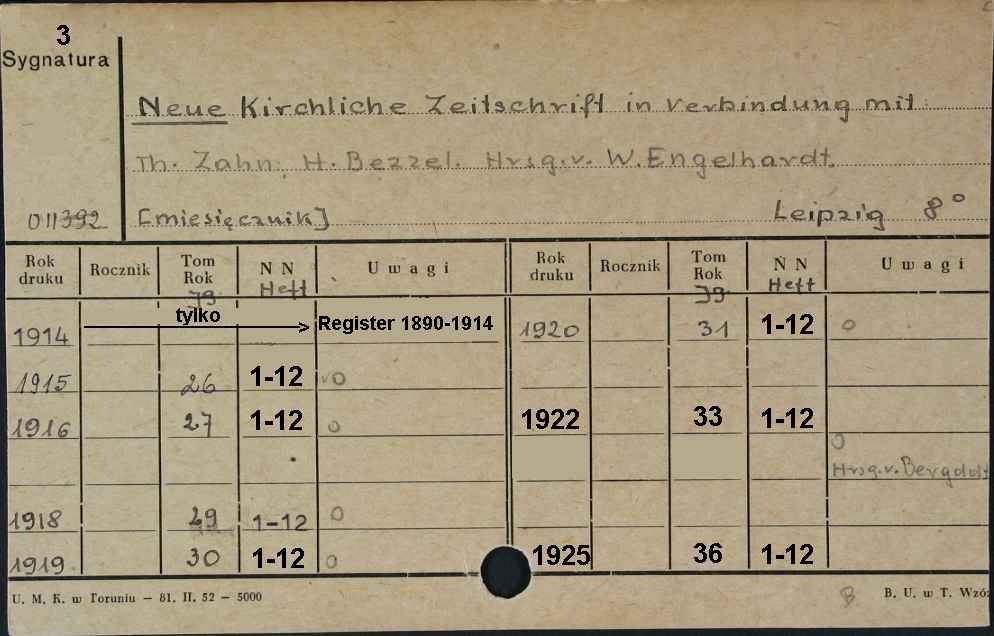 3
Sygnatura
Neue Kirchliche Zeitschrift in Verbindung mit
Th. Zahn; H. Bezzel. Hrsg. v. W. Engelhardt.
011392 [miesięcznik] Leipzig 8°
Rok druku Rocznik Tom Rok N N Uwagi Rok druku Rocznik Tom Rok N N Uwagi
Jg. Heft Jg. Heft
1914 tylko Register 1890-1914 1920 31 1-12 o
1915 26 1-12 vo
1916 27 1-12 o 1922 33 1-12
o
Hrsg. v. Bergdolt
1918 29 1-12 o
1919 30 1-12 o 1925 36 1-12
U. M. K. w Toruniu — 81. II. 52 — 5000 B B. U. w T. Wzór